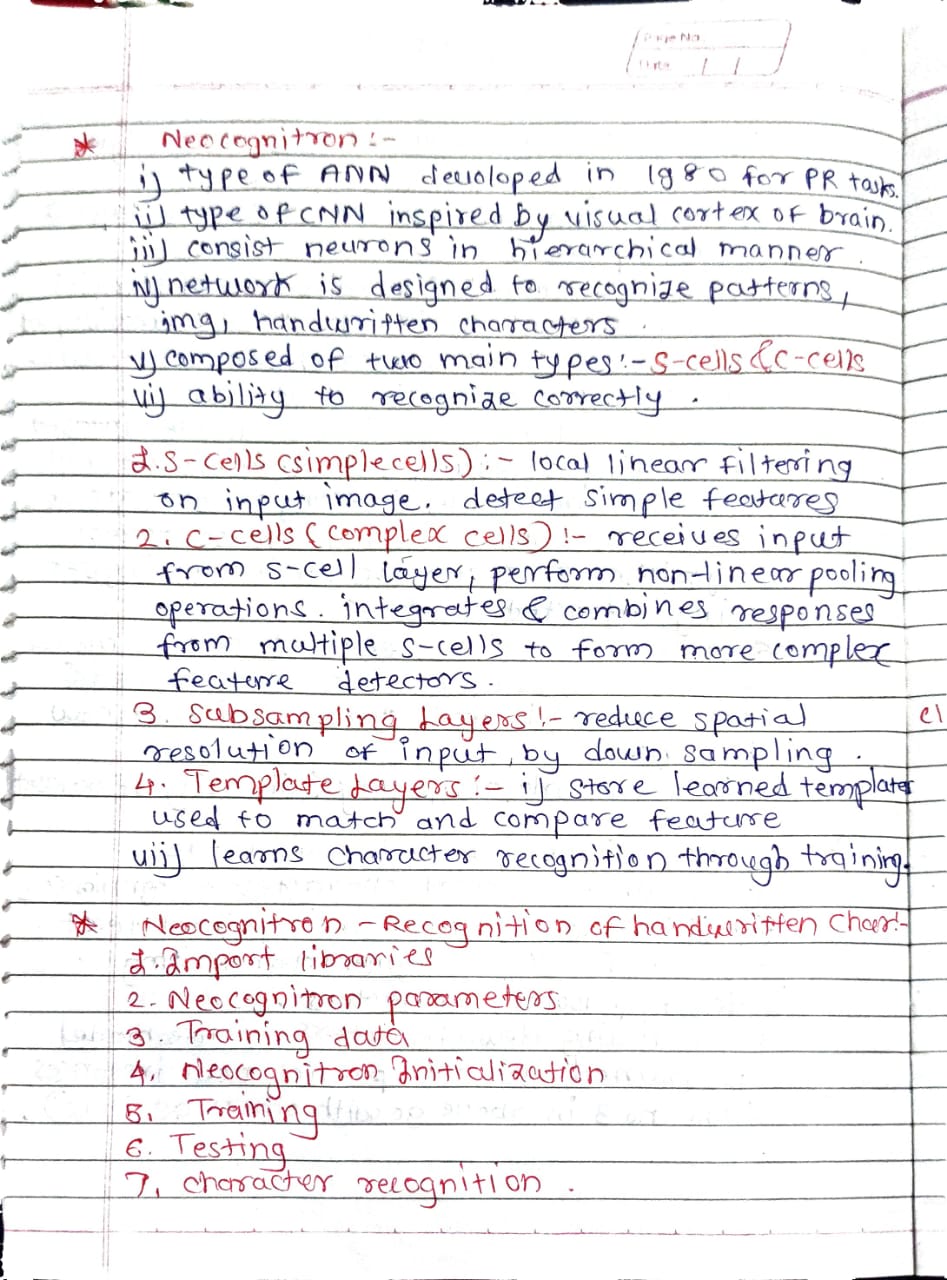 Page No.
Date / /
* Neocognitron :-
i) type of ANN devoloped in 1980 for PR tasks.
ii) type of CNN inspired by visual cortex of brain.
iii) consist neurons in hierarchical manner.
iv) network is designed to recognize patterns,
img, handwritten characters.
v) composed of two main types :- S-cells & C-cells
vi) ability to recognize correctly.
1. S-cells (simple cells) :- local linear filtering
on input image. detect simple features
2. C-cells (complex cells) :- receives input
from S-cell layer, perform non-linear pooling
operations. integrates & combines responses
from multiple S-cells to form more complex
feature detectors.
3. Subsampling Layers :- reduce spatial
resolution of input, by down sampling.
4. Template Layers :- i) store learned templates
used to match and compare feature
vii) learns character recognition through training.
* Neocognitron - Recognition of handwritten Char:-
1. Import libraries
2. Neocognitron parameters
3. Training data
4. Neocognitron Initialization
5. Training
6. Testing
7. character recognition.